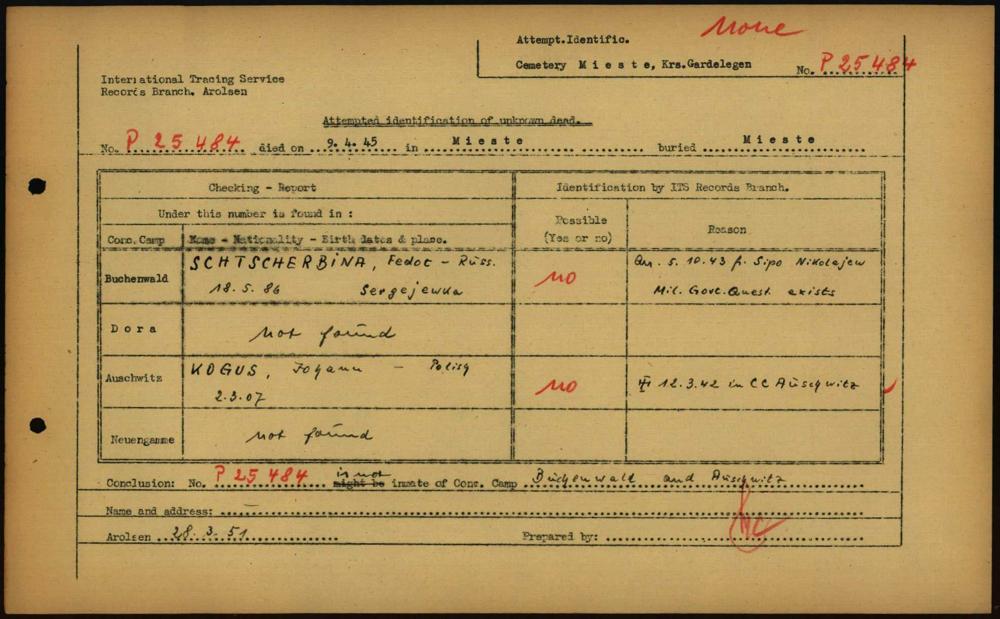 None
Attempt.Identific.
Cemetery Mieste, Krs.Gardelegen
No. P 25 484
International Tracing Service
Records Branch. Arolsen
Attempted identification of unknown dead.
No. P 25 484 died on 9. 4. 45 in Mieste buried Mieste
Checking - Report
Identification by ITS Records Branch.
Under this number is found in :
Possible
(Yes or no)
Reason
Conc. Camp Name - Nationality - Birth dates & place.
Buchenwald SCHTSCHERBINA, Fedot - Russ. no 5. 10. 43 f. Sipo Nikolajew
18. 5. 86 Sergejewka Mil. Govt. Quest. exists
Dora not found
Auschwitz KOGUS, Johann - Polish no 12. 3. 42 in CC Auschwitz
2. 3. 07
Neuengamme not found
Conclusion: No. P 25 484 is not might be inmate of Conc. Camp Buchenwald and Auschwitz
Name and address: —
Arolsen 28. 3. 51 Prepared by: